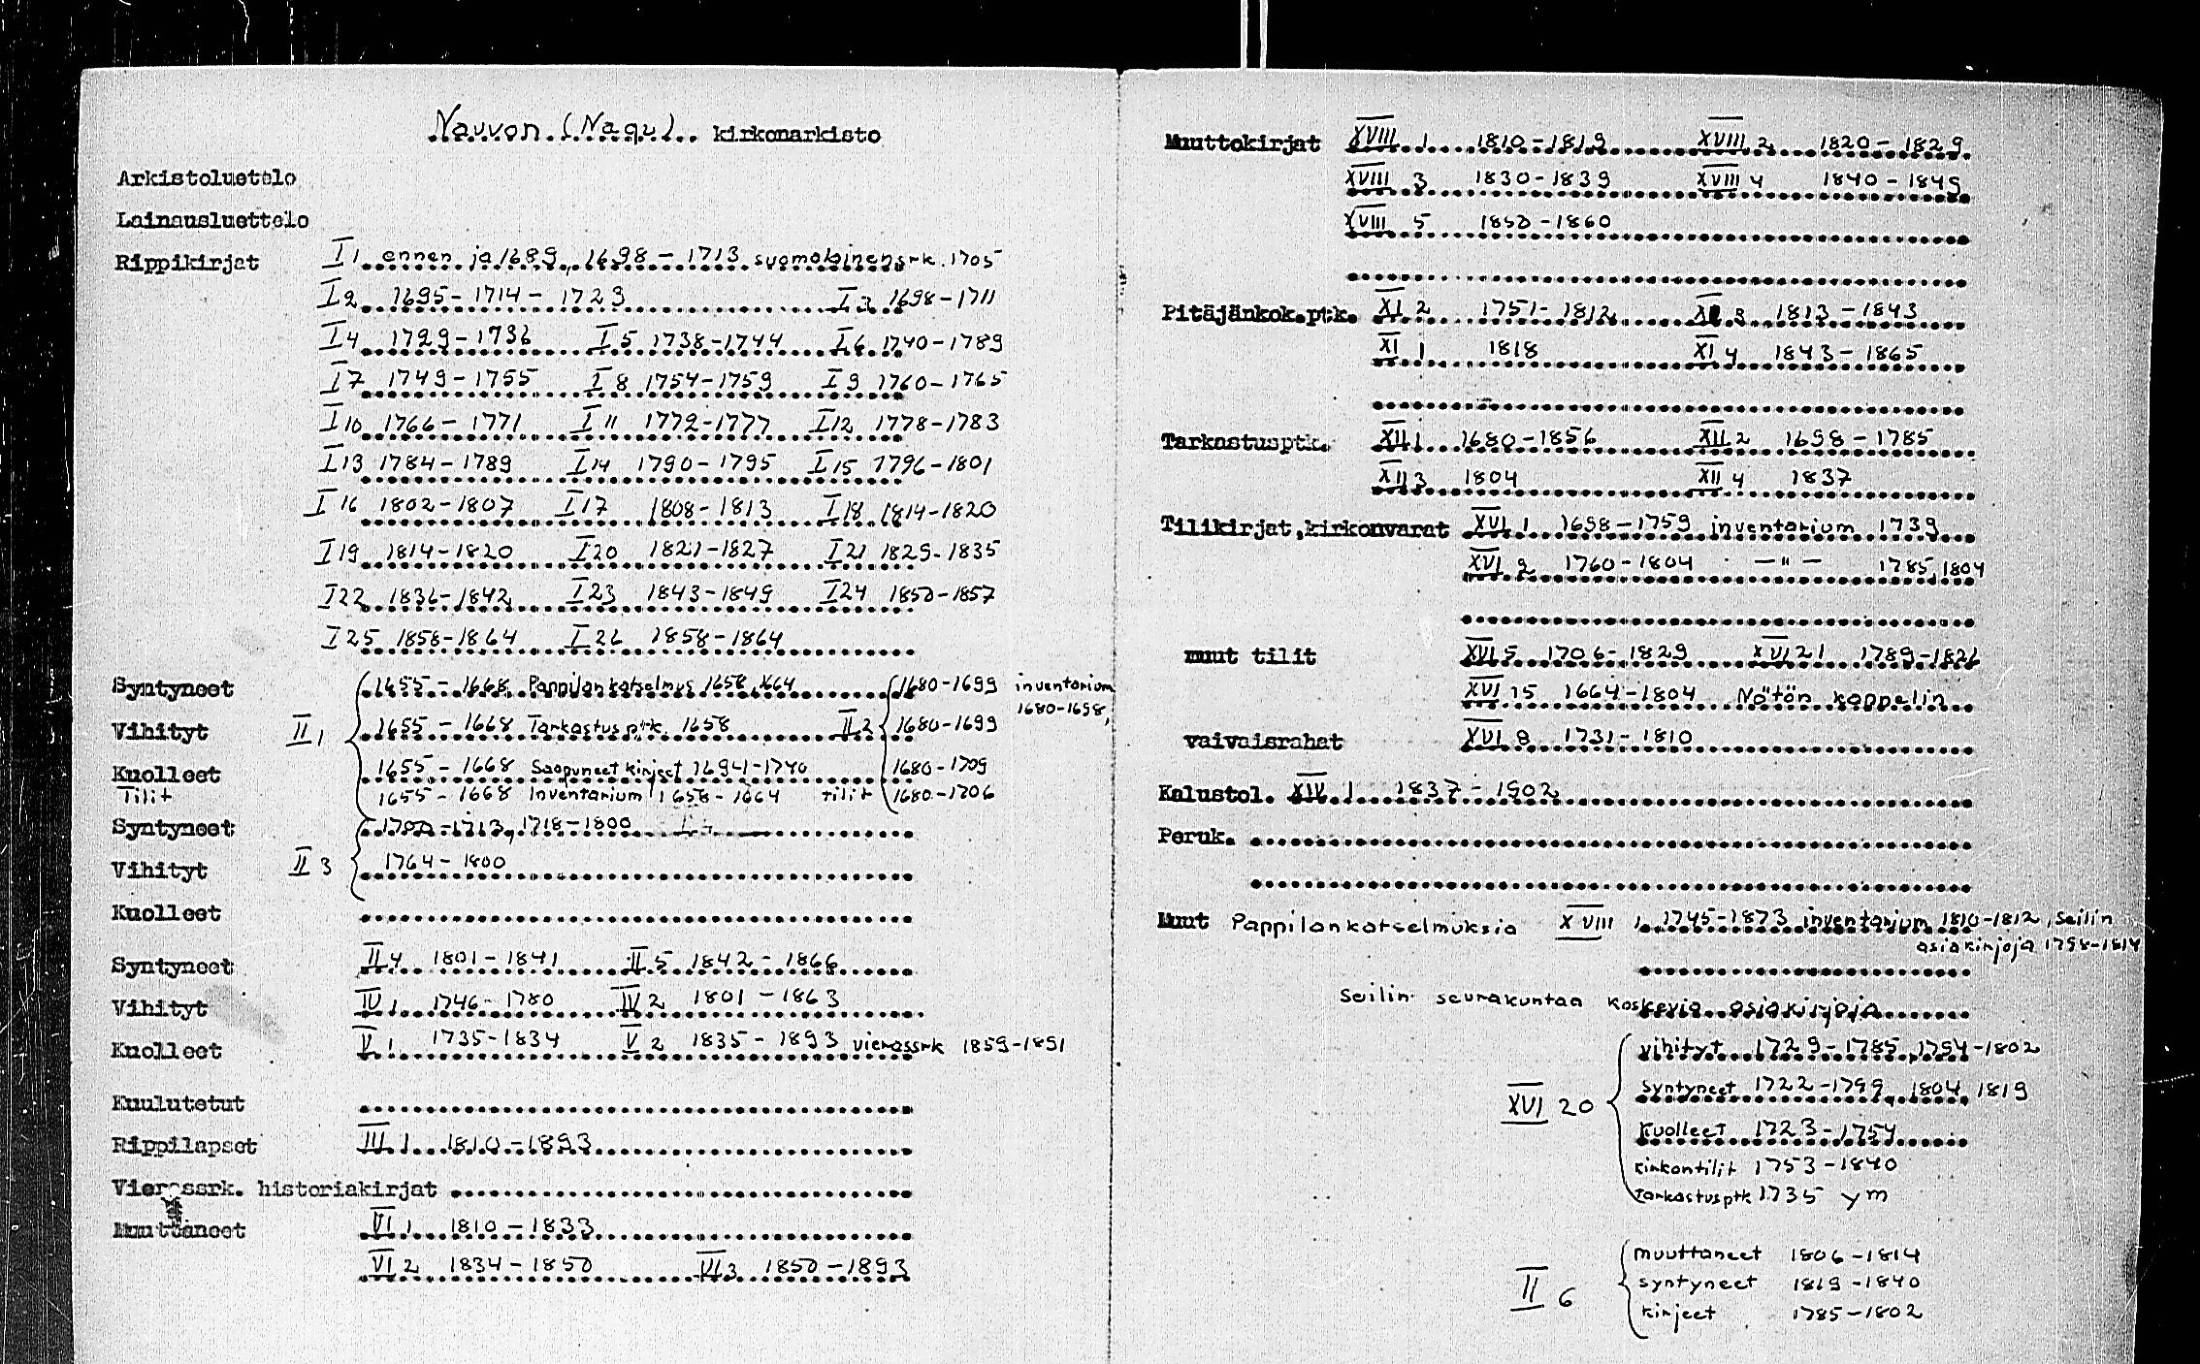 Nauvon (Nagu) kirkonarkisto
Arkistoluettelo
Lainausluettelo
Rippikirjat I 1 ennen ja 1689, 1698-1713 suomalainen srk. 1705
I 2 1695-1714-1723 I 3 1698-1711
I 4 1729-1736 I 5 1738-1744 I 6 1740-1789
I 7 1749-1755 I 8 1754-1759 I 9 1760-1765
I 10 1766-1771 I 11 1772-1777 I 12 1778-1783
I 13 1784-1789 I 14 1790-1795 I 15 1796-1801
I 16 1802-1807 I 17 1808-1813 I 18 1814-1820
I 19 1814-1820 I 20 1821-1827 I 21 1829-1835
I 22 1836-1842 I 23 1843-1849 I 24 1850-1857
I 25 1858-1864 I 26 1858-1864
Syntyneet 1655-1668 Pappilankatselmus 1658, 1664 1680-1699 inventarium
1680-1698,
Vihityt II 1 1655-1668 Tarkastusptk. 1658 II 2 1680-1699
Kuolleet 1655-1668 Saapuneet kirjeet 1694-1740 1680-1709
Tilit 1655-1668 Inventarium 1658-1664 tilit 1680-1706
Syntyneet 1700-1713, 1718-1800
Vihityt II 3 1764-1800
Kuolleet
Syntyneet II 4 1801-1841 II 5 1842-1866
Vihityt IV 1 1746-1780 IV 2 1801-1863
Kuolleet V 1 1735-1834 V 2 1835-1893 vierassrk 1859-1891
Kuulutetut
Rippilapset III 1 1810-1893
Vierassrk. historiakirjat
Muuttaneet VI 1 1810-1833
VI 2 1834-1850 VI 3 1850-1893
Muuttokirjat XVIII 1 1810-1819 XVIII 2 1820-1829
XVIII 3 1830-1839 XVIII 4 1840-1849
XVIII 5 1850-1860
Pitäjänkok.ptk. XI 2 1751-1812 XI 3 1813-1843
XI 1 1818 XI 4 1843-1865
Tarkastusptk. XII 1 1680-1856 XII 2 1698-1785
XII 3 1804 XII 4 1837
Tilikirjat, kirkonvarat XVI 1 1698-1759 inventarium 1739
XVI 2 1760-1804 -"- 1785, 1804
muut tilit XVI 5 1706-1829 XVI 21 1789-1826
XVI 15 1664-1804 Nötön kappelin
vaivaisrahat XVI 8 1731-1810
Kalustol. XIV 1 1837-1902
Peruk.
Muut Pappilankatselmuksia XVIII 1 1745-1873 inventarium 1810-1812, Seilin
asiakirjoja 1798-1814
Seilin seurakuntaa koskevia asiakirjoja
vihityt 1729-1785, 1794-1802
syntyneet 1722-1799, 1804, 1819
XVI 20
Kuolleet 1723-1754
kirkontilit 1753-1840
tarkastusptk 1735 ym
muuttaneet 1806-1814
II 6 syntyneet 1819-1840
kirjeet 1785-1802